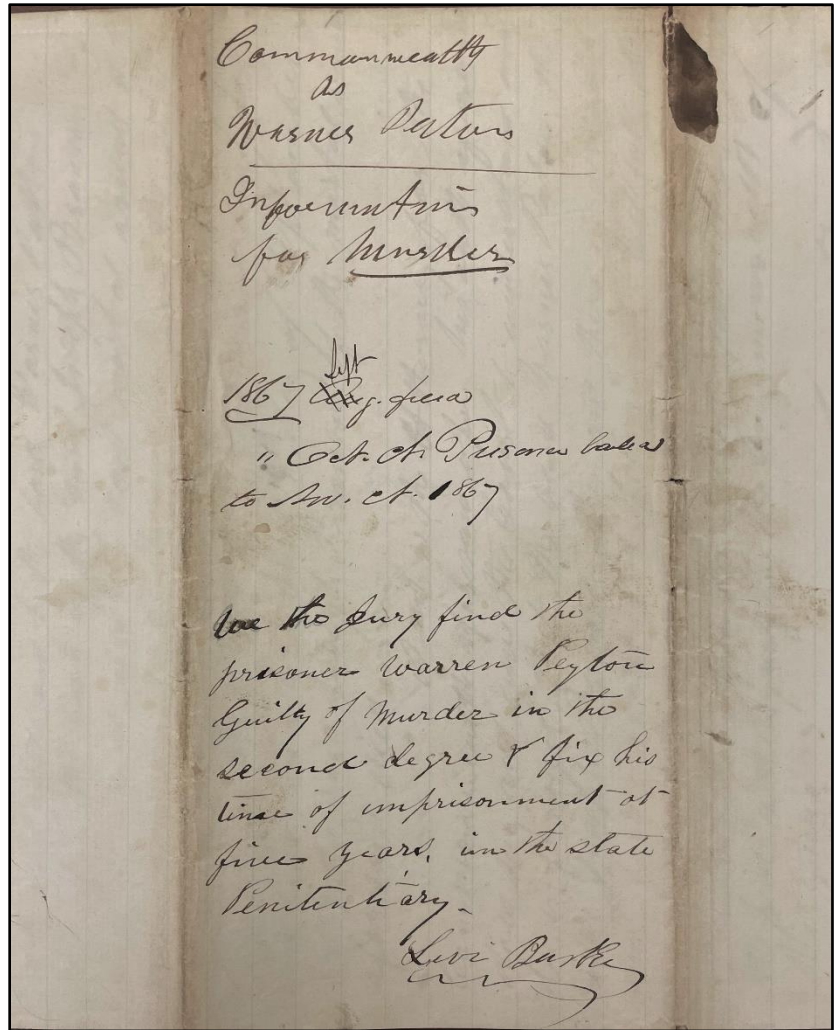 Commonwealth
vs
Warner Paten
Information
for Murder
Sept
1867 Aug. filed
" Oct. Ct. Prisoner bailed
to Nov. Ct. 1867
We the Jury find the
prisoner Warren Peyton
Guilty of Murder in the
second degree & fix his
time of imprisonment at
five years, in the state
Penitentiary.
Levi Burke